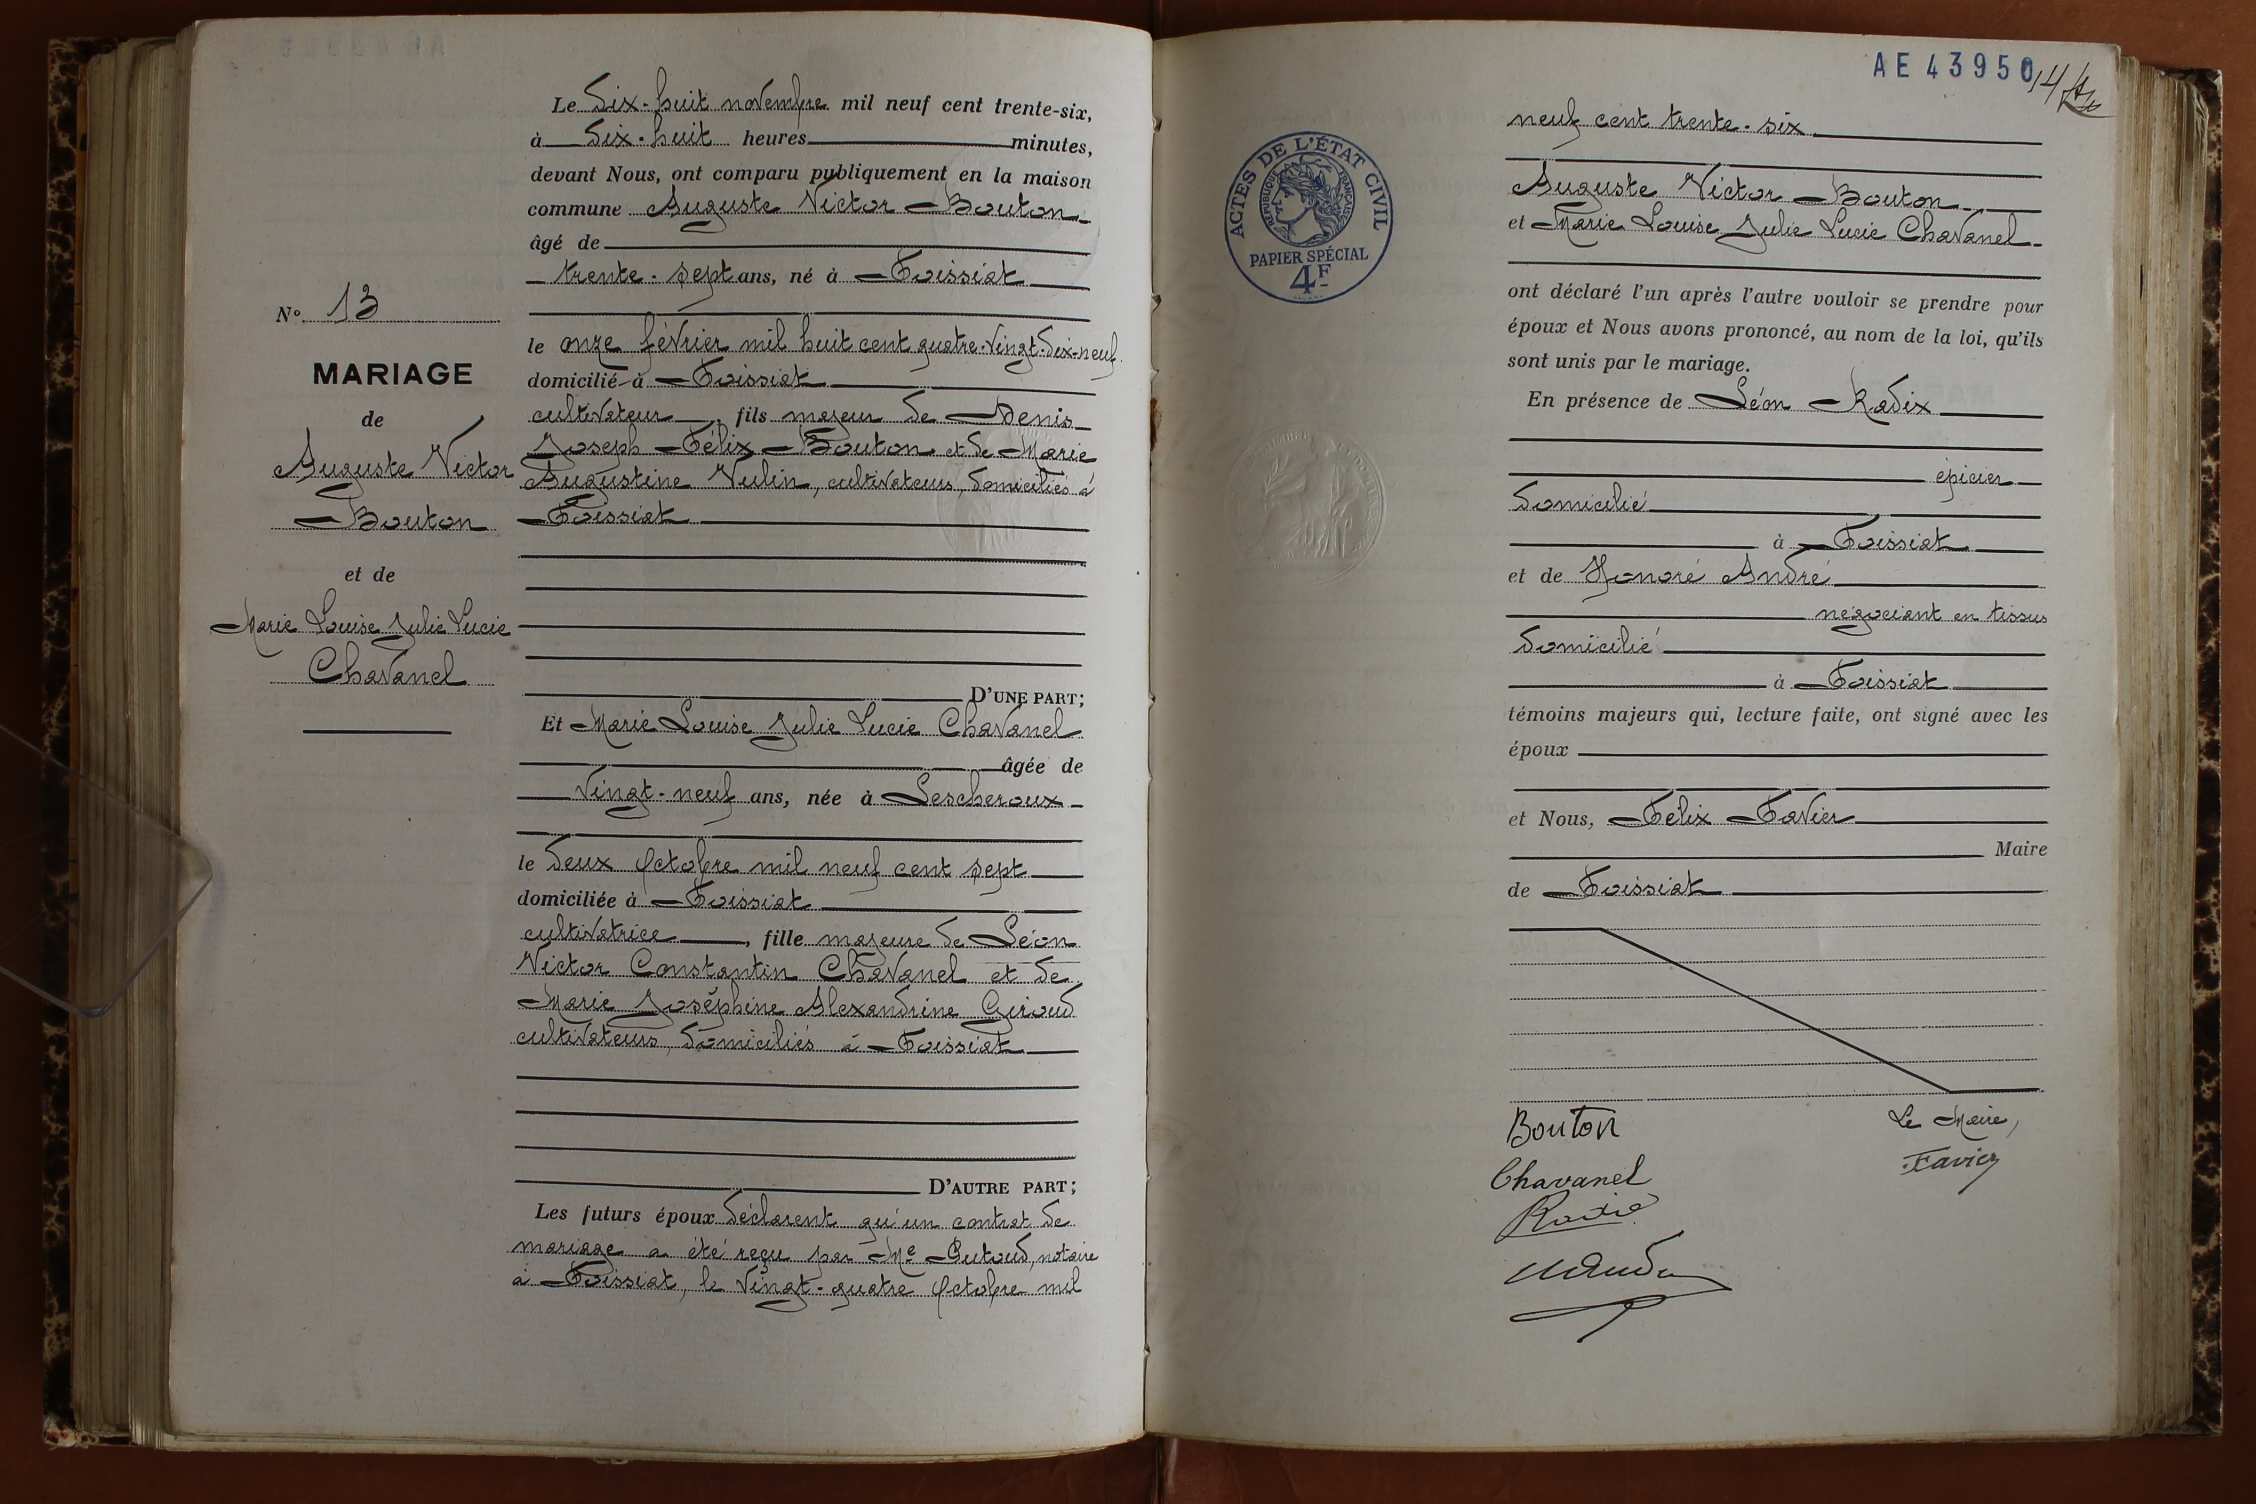 Le dix-huit novembre mil neuf cent trente-six,
à dix-huit heures minutes,
devant Nous, ont comparu publiquement en la maison
commune Auguste Victor Bouton
âgé de
trente-sept ans, né à Foissiat
le onze février mil huit cent quatre-vingt-dix-neuf
domicilié à Foissiat
cultivateur, fils majeur de Denis
Joseph Félix Bouton et de Marie
Augustine Vulin, cultivateurs, domiciliés à
Foissiat
D'UNE PART;
Et Marie Louise Julie Lucie Chavanel
âgée de
vingt-neuf ans, née à Lescheroux
le deux octobre mil neuf cent sept
domiciliée à Foissiat
cultivatrice, fille majeure de Léon
Victor Constantin Chavanel et de
Marie Joséphine Alexandrine Giroud
cultivateurs, domiciliés à Foissiat
D'AUTRE PART;
Les futurs époux déclarent qu'un contrat de
mariage a été reçu par Me Butoud, notaire
à Foissiat, le vingt-quatre octobre mil
No. 13
MARIAGE
de
Auguste Victor
Bouton
et de
Marie Louise Julie Lucie
Chavanel
AE 43950
14
neuf cent trente-six
Auguste Victor Bouton
et Marie Louise Julie Lucie Chavanel
ont déclaré l'un après l'autre vouloir se prendre pour
époux et Nous avons prononcé, au nom de la loi, qu'ils
sont unis par le mariage.
En présence de Léon Radix
épicier
domicilié
à Foissiat
et de Honoré André
négociant en tissus
domicilié
à Foissiat
témoins majeurs qui, lecture faite, ont signé avec les
époux
et Nous, Félix Favier
Maire
de Foissiat
Bouton
Le Maire,
Favier
Chavanel
Radix
ACTES DE L'ÉTAT CIVIL
RÉPUBLIQUE FRANÇAISE
PAPIER SPÉCIAL
4F